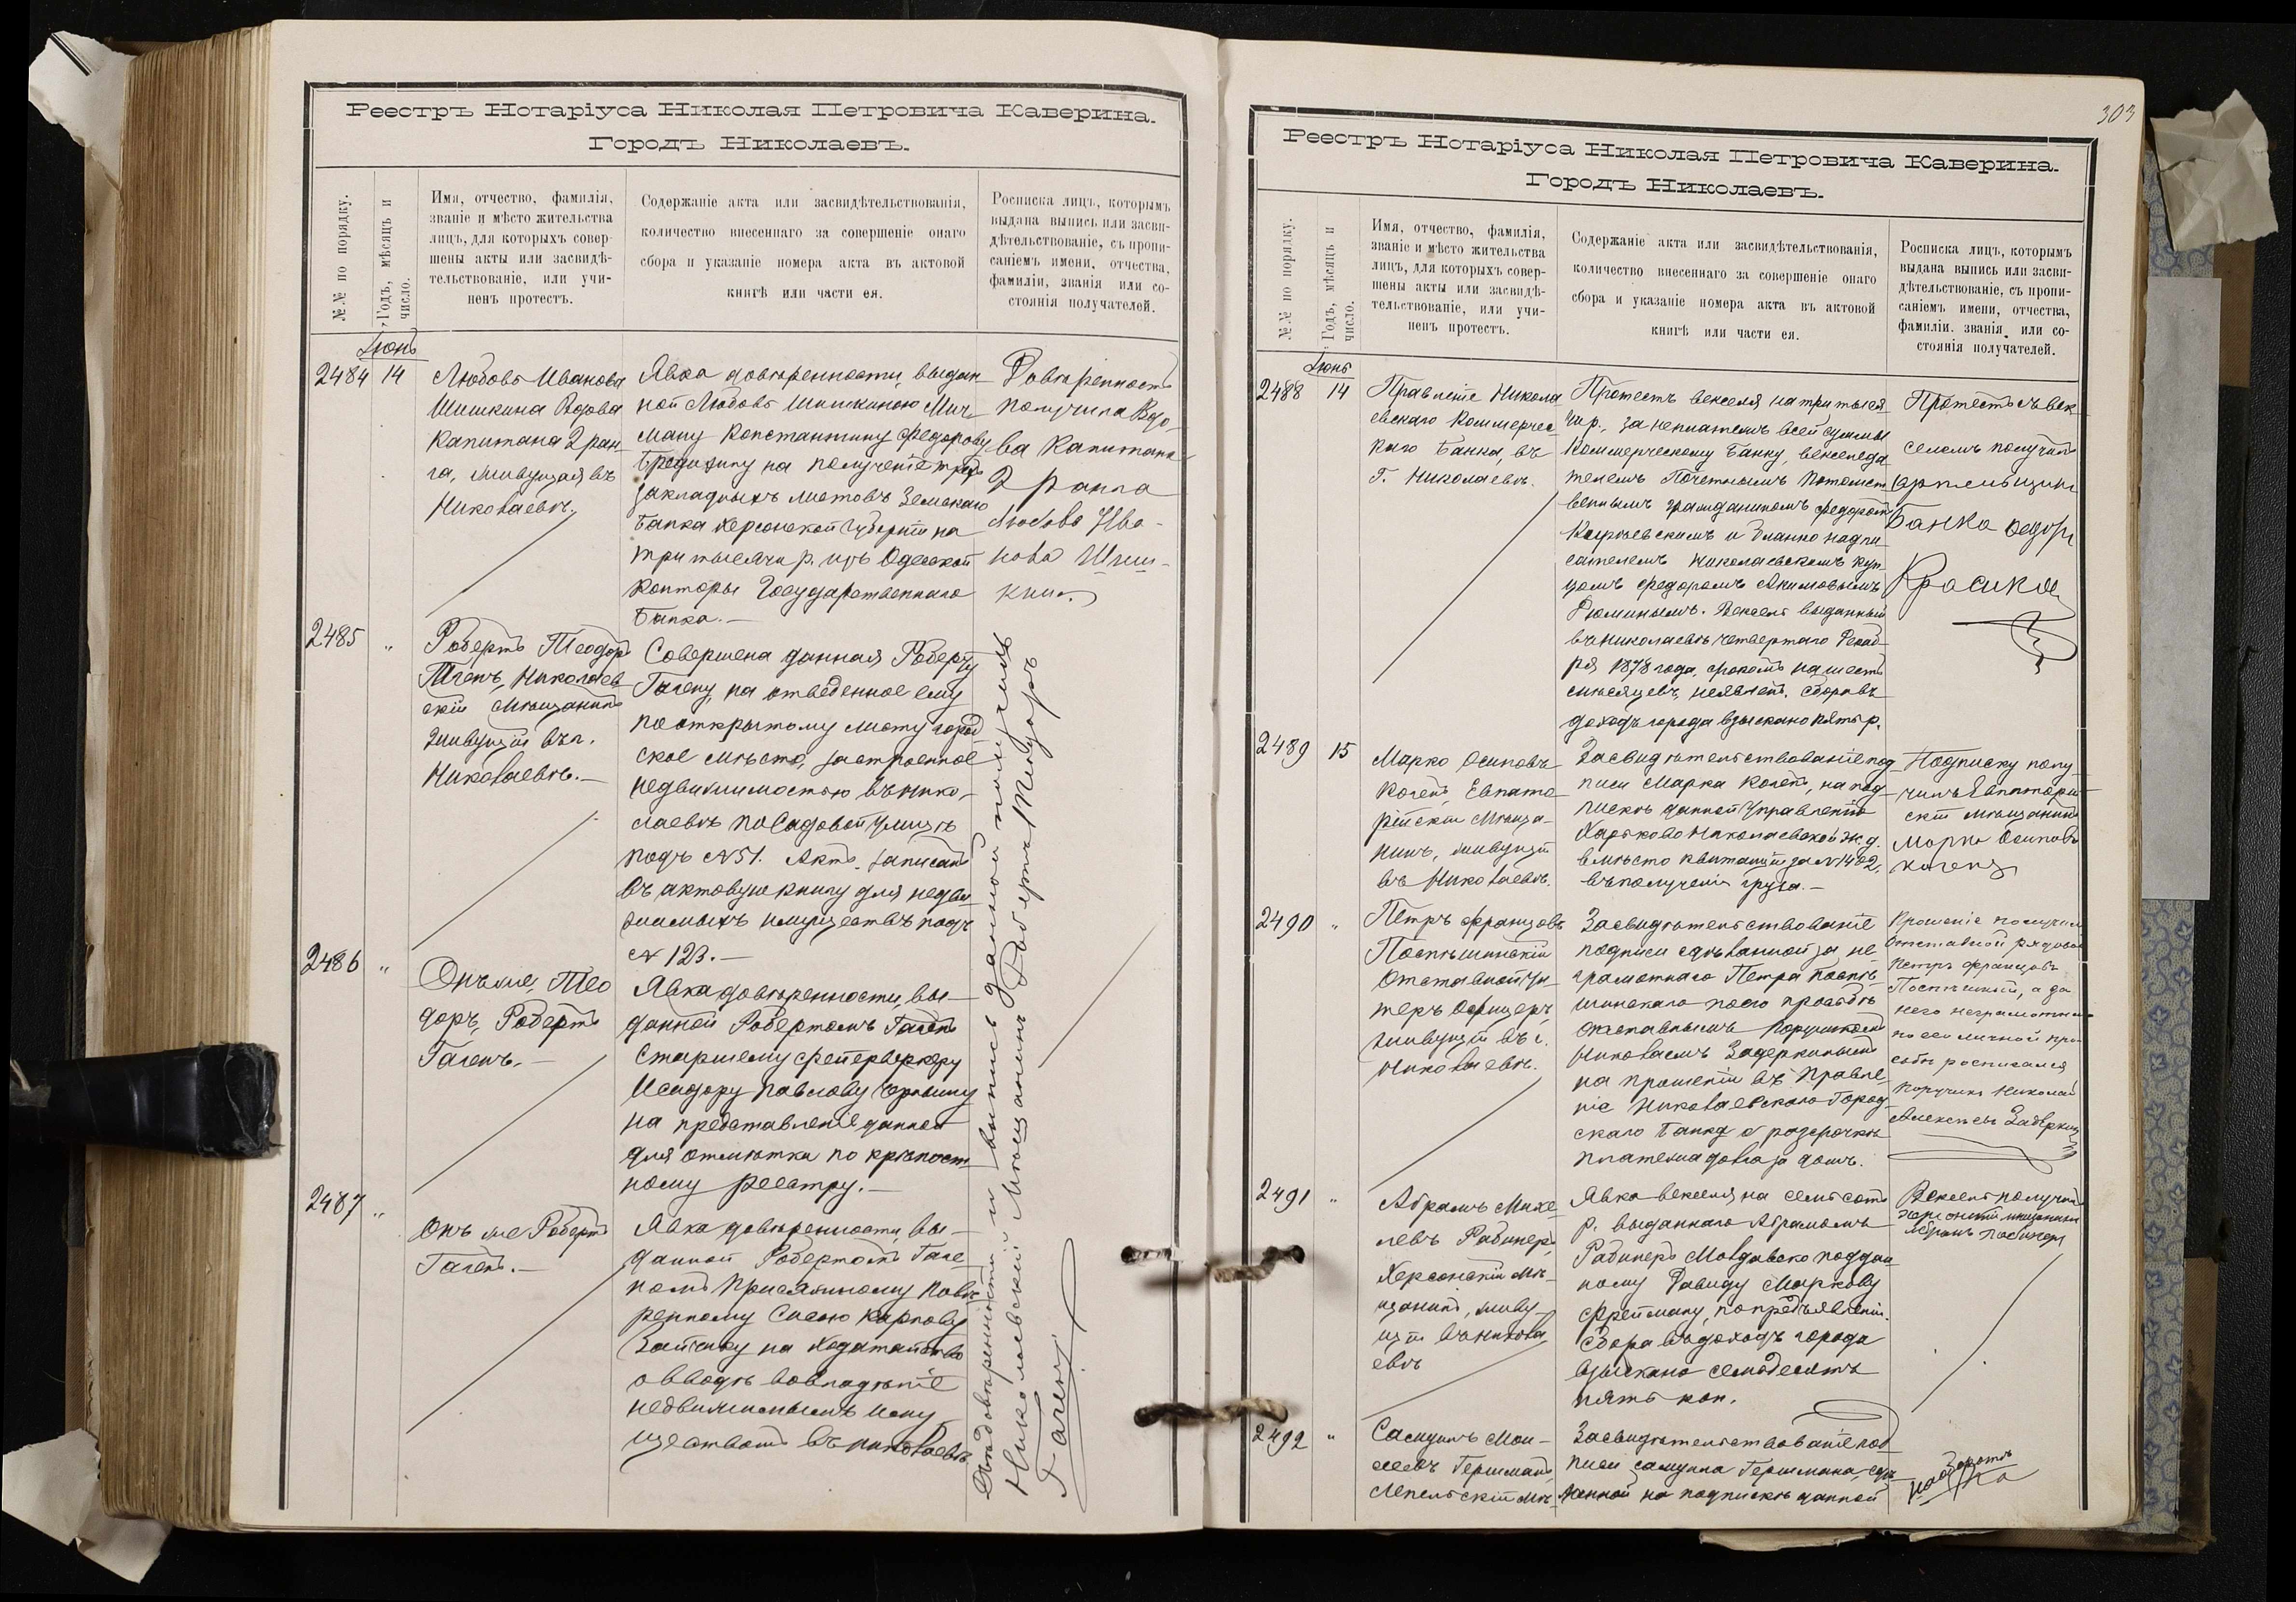 Реестръ Нотаріуса Николая Петровича Каверина.
Городъ Николаевъ.
№№ по порядку.
Годъ, мѣсяцъ и
число.
Имя, отчество, фамилія,
званіе и мѣсто жительства
лицъ, для которыхъ совер-
шены акты или засвидѣ-
тельствованіе, или учи-
ненъ протестъ.
Содержаніе акта или засвидѣтельствованія,
количество внесеннаго за совершеніе онаго
сбора и указаніе номера акта въ актовой
книгѣ или части ея.
Росписка лицъ, которымъ
выдана выпись или засви-
дѣтельствованіе, съ пропи-
саніемъ имени, отчества,
фамиліи, званія или со-
стоянія получателей.
Іюнь
2484 14
Любовь Иванова
Шишкина Вдова
Капитана 2 ран-
га, живущая въ
Николаевѣ.
Явка довѣренности, выдан-
ной Любовь Шишкиною Мич-
ману Константину Федорову
на полученіе трехъ
закладныхъ листовъ Земскаго
Банка Херсонской Губерніи на
три тысячи р. изъ Одесской
Конторы Государственнаго
Банка.—
Довѣренность
получила Вдо-
ва Капитана
2 ранга
Любовь Ива-
нова Шиш-
кина
2485 "
Робертъ Теодоръ
Гагенъ, Николаев-
скій мѣщанинъ
живущій въ г.
Николаевѣ.—
Совершена данная Роберту
Гагену, на отведенное ему
по открытому листу город
ское мѣсто, застроенное
недвижимостью въ Нико-
лаевѣ по Садовой улицѣ
подъ №51. Актъ записанъ
въ актовую книгу для недви
жимыхъ имуществъ подъ
№ 123.—
2486 "
Онъ же, Тео
доръ, Робертъ
Гагенъ.—
Явка довѣренности, вы-
данной Робертомъ Гагенъ
Старшему фейерверкеру
Исидору Павлову
на представленіе данной
для отмѣтки по крѣпост
ному реестру.—
2487 "
Онъ же Робертъ
Гагенъ.—
Явка довѣренности, вы-
данной Робертомъ Гаге
номъ Присяжному Повѣ
ренному Сысою Карпову
Зайчику на ходатайство
о вводѣ во владѣніе
недвижимымъ иму
ществомъ въ Николаевѣ
Двѣ довѣренности и выпись данной получилъ
Николаевскій Мѣщанинъ Робертъ Теодоръ
Гагенъ
303
Реестръ Нотаріуса Николая Петровича Каверина.
Городъ Николаевъ.
№№ по порядку.
Годъ, мѣсяцъ и
число.
Имя, отчество, фамилія,
званіе и мѣсто жительства
лицъ, для которыхъ совер-
шены акты или засвидѣ-
тельствованіе, или учи-
ненъ протестъ.
Содержаніе акта или засвидѣтельствованія,
количество внесеннаго за совершеніе онаго
сбора и указаніе номера акта въ актовой
книгѣ или части ея.
Росписка лицъ, которымъ
выдана выпись или засви-
дѣтельствованіе, съ пропи-
саніемъ имени, отчества,
фамиліи. званія или со-
стоянія получателей.
Іюнь
2488 14
Правленіе Никола
евскаго Коммерчес-
каго Банка, въ
г. Николаевѣ.
Протестъ векселя на три тыся
чи р., за неплатежъ всей суммы
Коммерческому Банку, векселеда
телемъ Почетнымъ Потомст
веннымъ гражданиномъ Федоромъ
и бланко надпи
сателемъ Николаевскимъ куп
цомъ Федоромъ Акимовымъ
Рюминымъ. Вексель выданный
въ Николаевѣ четвертаго Декаб
ря 1878 года, срокомъ на шесть
мѣсяцевъ, неявленъ. Сборъ въ
доходъ города взыскано пять р.
Протестъ съ век
селемъ получилъ
артельщикъ
Банка Федоръ
2489 15
Марко Осиповъ
Когенъ, Евпато
рійскій Мѣща-
нинъ, живущій
въ Николаевѣ.
Засвидѣтельствованіе под
писи Марка Когенъ, на под
пискѣ данной Управленію
Харьково Николаевской ж. д.
вмѣсто квитанціи за №1402,
въ полученіи груза.—
Подписку полу
чилъ Евпаторій
скій мѣщанинъ
Марко Осиповъ
Когенъ
2490 "
Петръ Францовъ
Поспѣшинскій
Отставной Ун-
теръ Офицеръ,
живущій въ г.
Николаевѣ.
Засвидѣтельствованіе
подписи сдѣланной за не
грамотнаго Петра Поспѣ-
шинскаго по его просьбѣ
отставнымъ Поручикомъ
Николаемъ Задеркинымъ
на прошеніи въ Правле
ніе Николаевскаго Город
скаго Банка о разсрочкѣ
платежа долга за домъ.
Прошеніе получилъ
Отставной рядовой
Петръ Францовъ
, а за
него неграмотнаго
по его личной про
сьбѣ росписался
Поручикъ Николай
Алексѣевъ Задеркинъ
2491 "
Абрамъ Михе
левъ Рабинеръ,
Херсонскій мѣ-
щанинъ, живу-
щій въ Никола
евѣ
Явка векселя на семьсотъ
р. выданнаго Абрамомъ
Рабинеръ Молдавско поддан
ному Давиду Маркову
Фрейману, по предъявленіи.
Сбора въ доходъ города
взыскано семьдесятъ
пять коп.
Вексель получилъ
Херсонскій мѣщанинъ
Абрамъ Рабинеръ
2492 "
Самуилъ Мои-
сеевъ Гершманъ,
Лепельскій мѣ-
Засвидѣтельствованіе под
писи Самуила Гершмана, сдѣ
ланной на подпискѣ данной